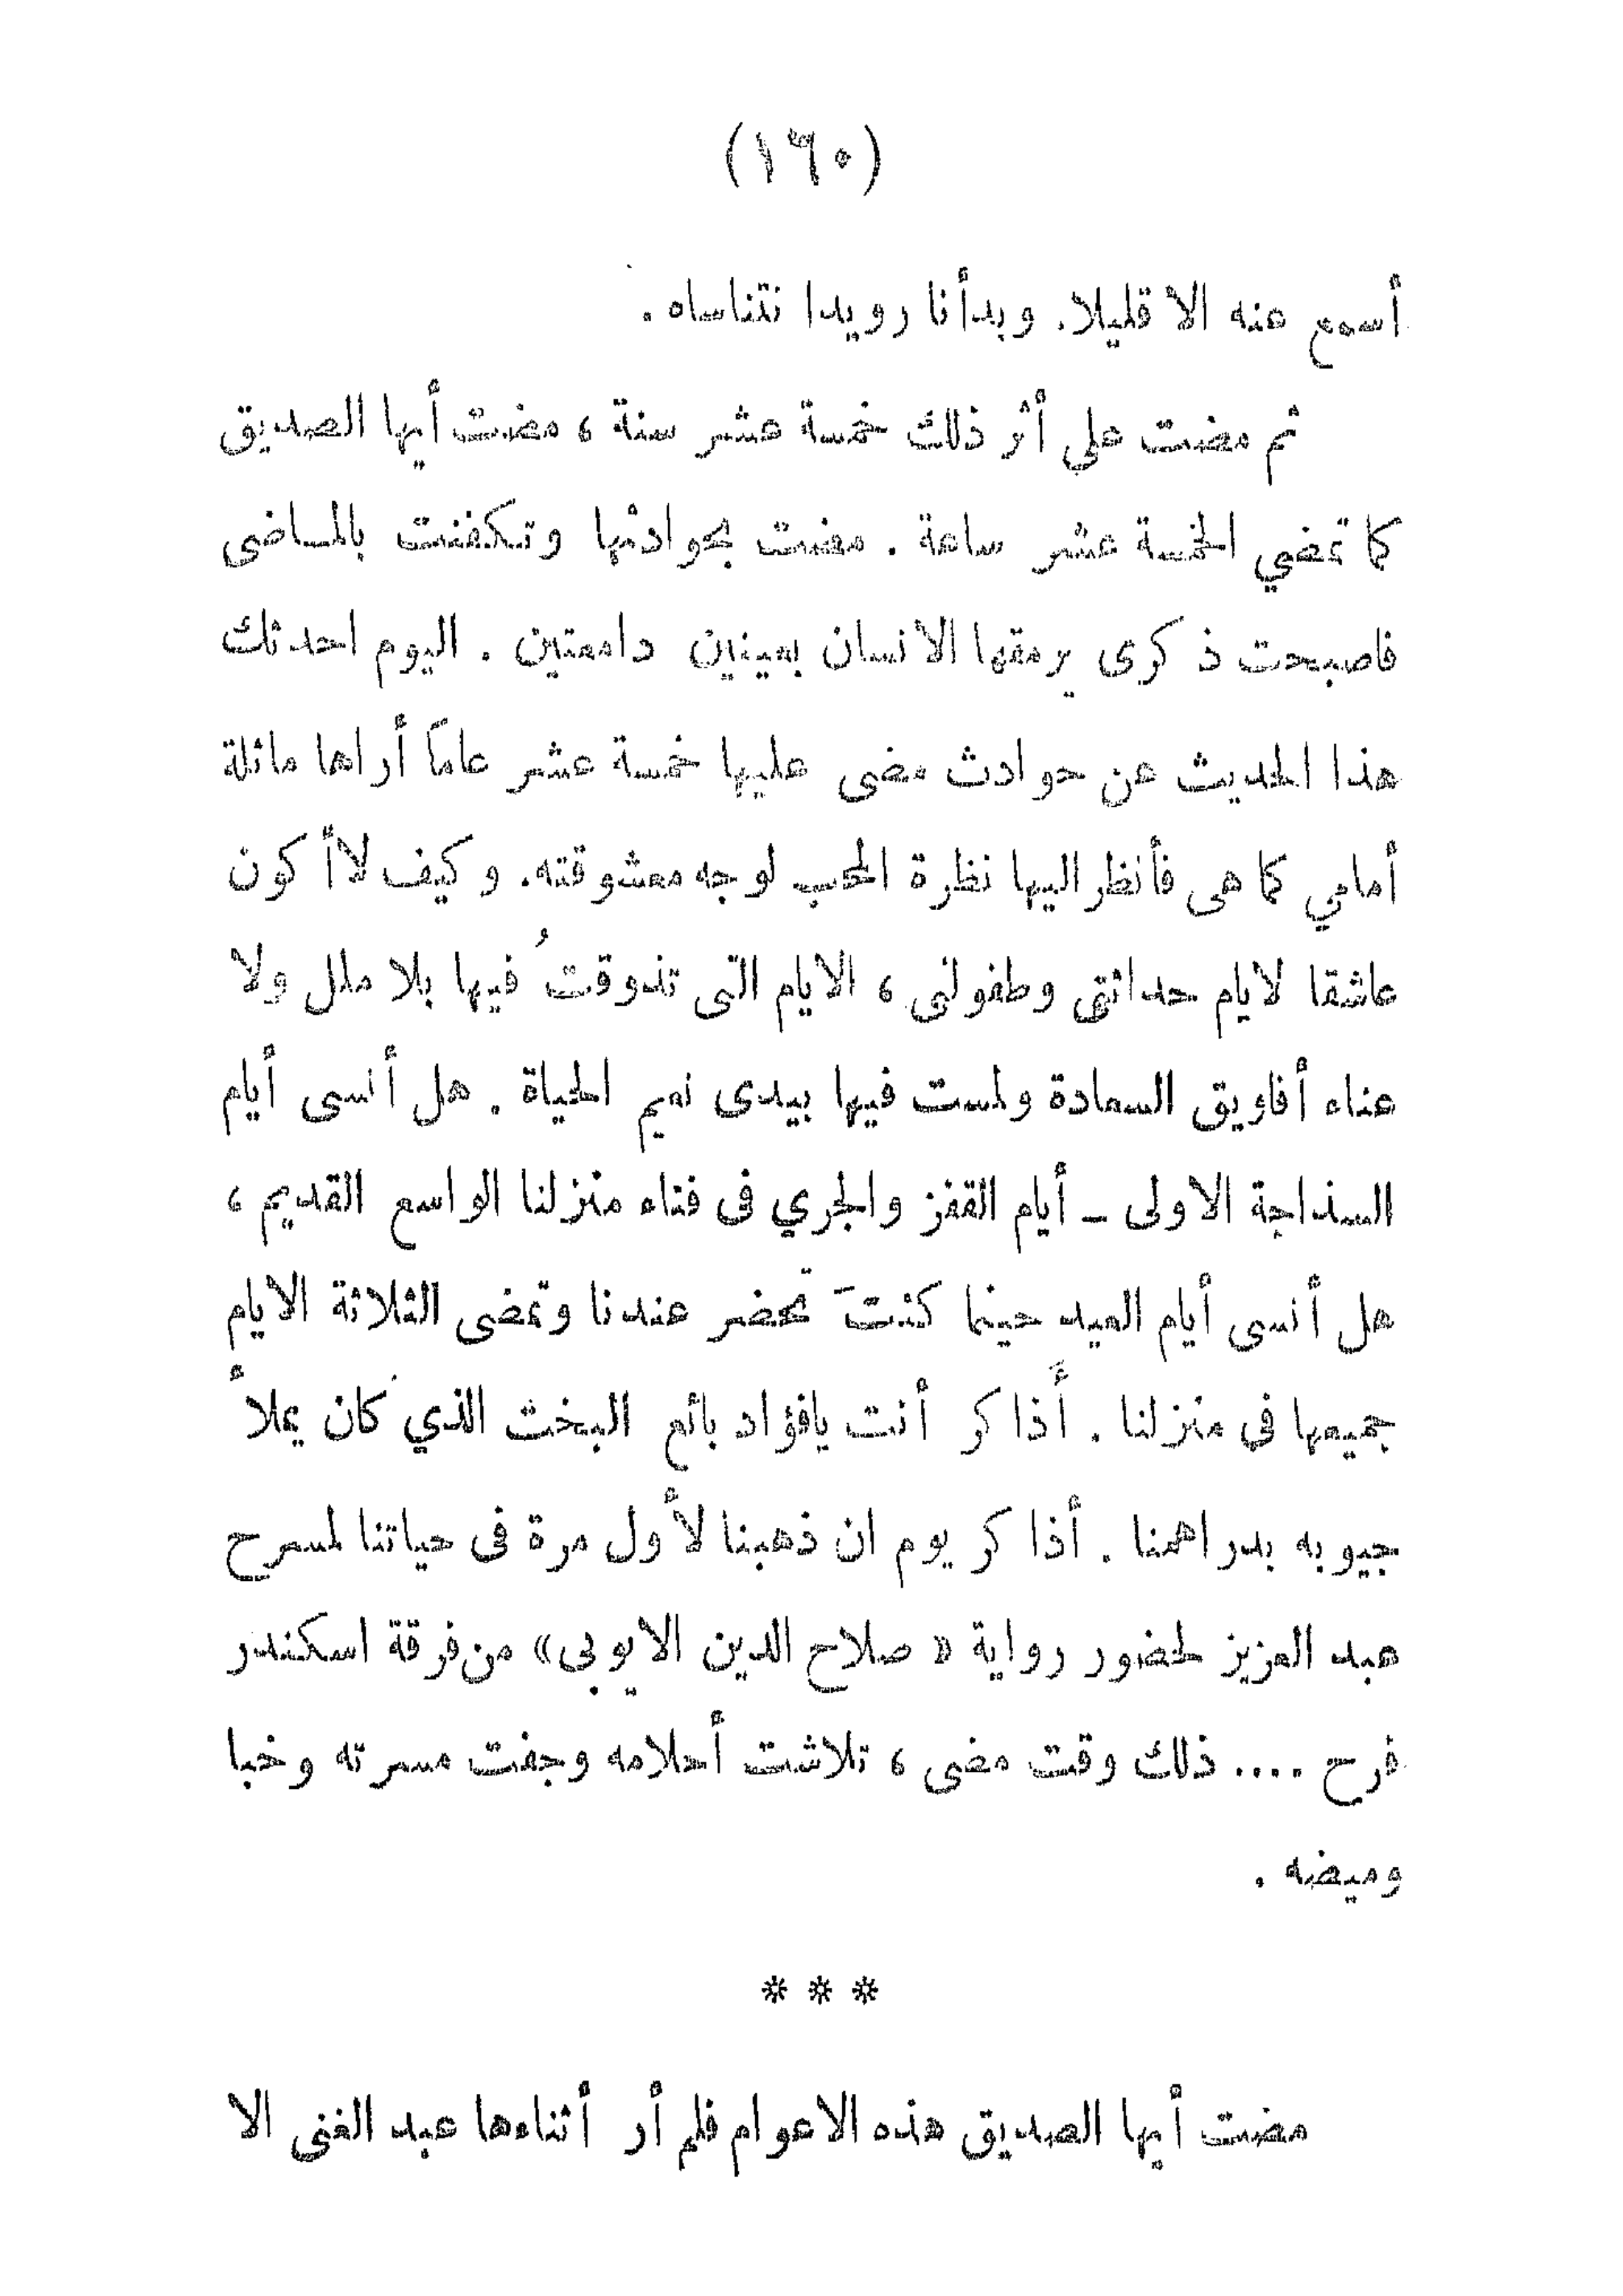 (١٦٠)
أسمع عنه الا قليلا. وبدأنا رويدا نتناساه .
ثم مضت على أثر ذلك خمسة عشر سنة ، مضت أيها الصديق
كما تمضي الخمسة عشر ساعة . مضت بحوادثها وتكفنت بالماضى
فاصبحت ذكرى يرمقها الانسان بعينين دامعتين . اليوم احدثك
هذا الحديث عن حوادث مضى عليها خمسة عشر عاماً أراها ماثلة
أمامي كما هى فأنظر اليها نظرة المحب لوجه معشوقته. وكيف لاأكون
عاشقا لايام حداثتى وطفولتى ، الايام التى تذوقتُ فيها بلا ملل ولا
عناء أفاويق السعادة ولمست فيها بيدى نعيم الحياة . هل أنسى أيام
السذاجة الاولى ـ أيام القفز والجري فى فناء منزلنا الواسع القديم ،
هل أنسى أيام العيد حينما كنتَ تحضر عندنا وتمضى الثلاثة الايام
جميعها فى منزلنا . أَذاكر أنت يافؤاد بائع البخث الذي كان يملأ
جيوبه بدراهمنا . أذاكر يوم ان ذهبنا لأول مرة فى حياتنا لمسرح
عبد العزيز لحضور رواية « صلاح الدين الايوبى» من فرقة اسكندر
فرح .... ذلك وقت مضى ، تلاشت أحلامه وجفت مسرته وخبا
وميضه .
* * *
مضت أيها الصديق هذه الاعوام فلم أر أثناءها عبد الغنى الا